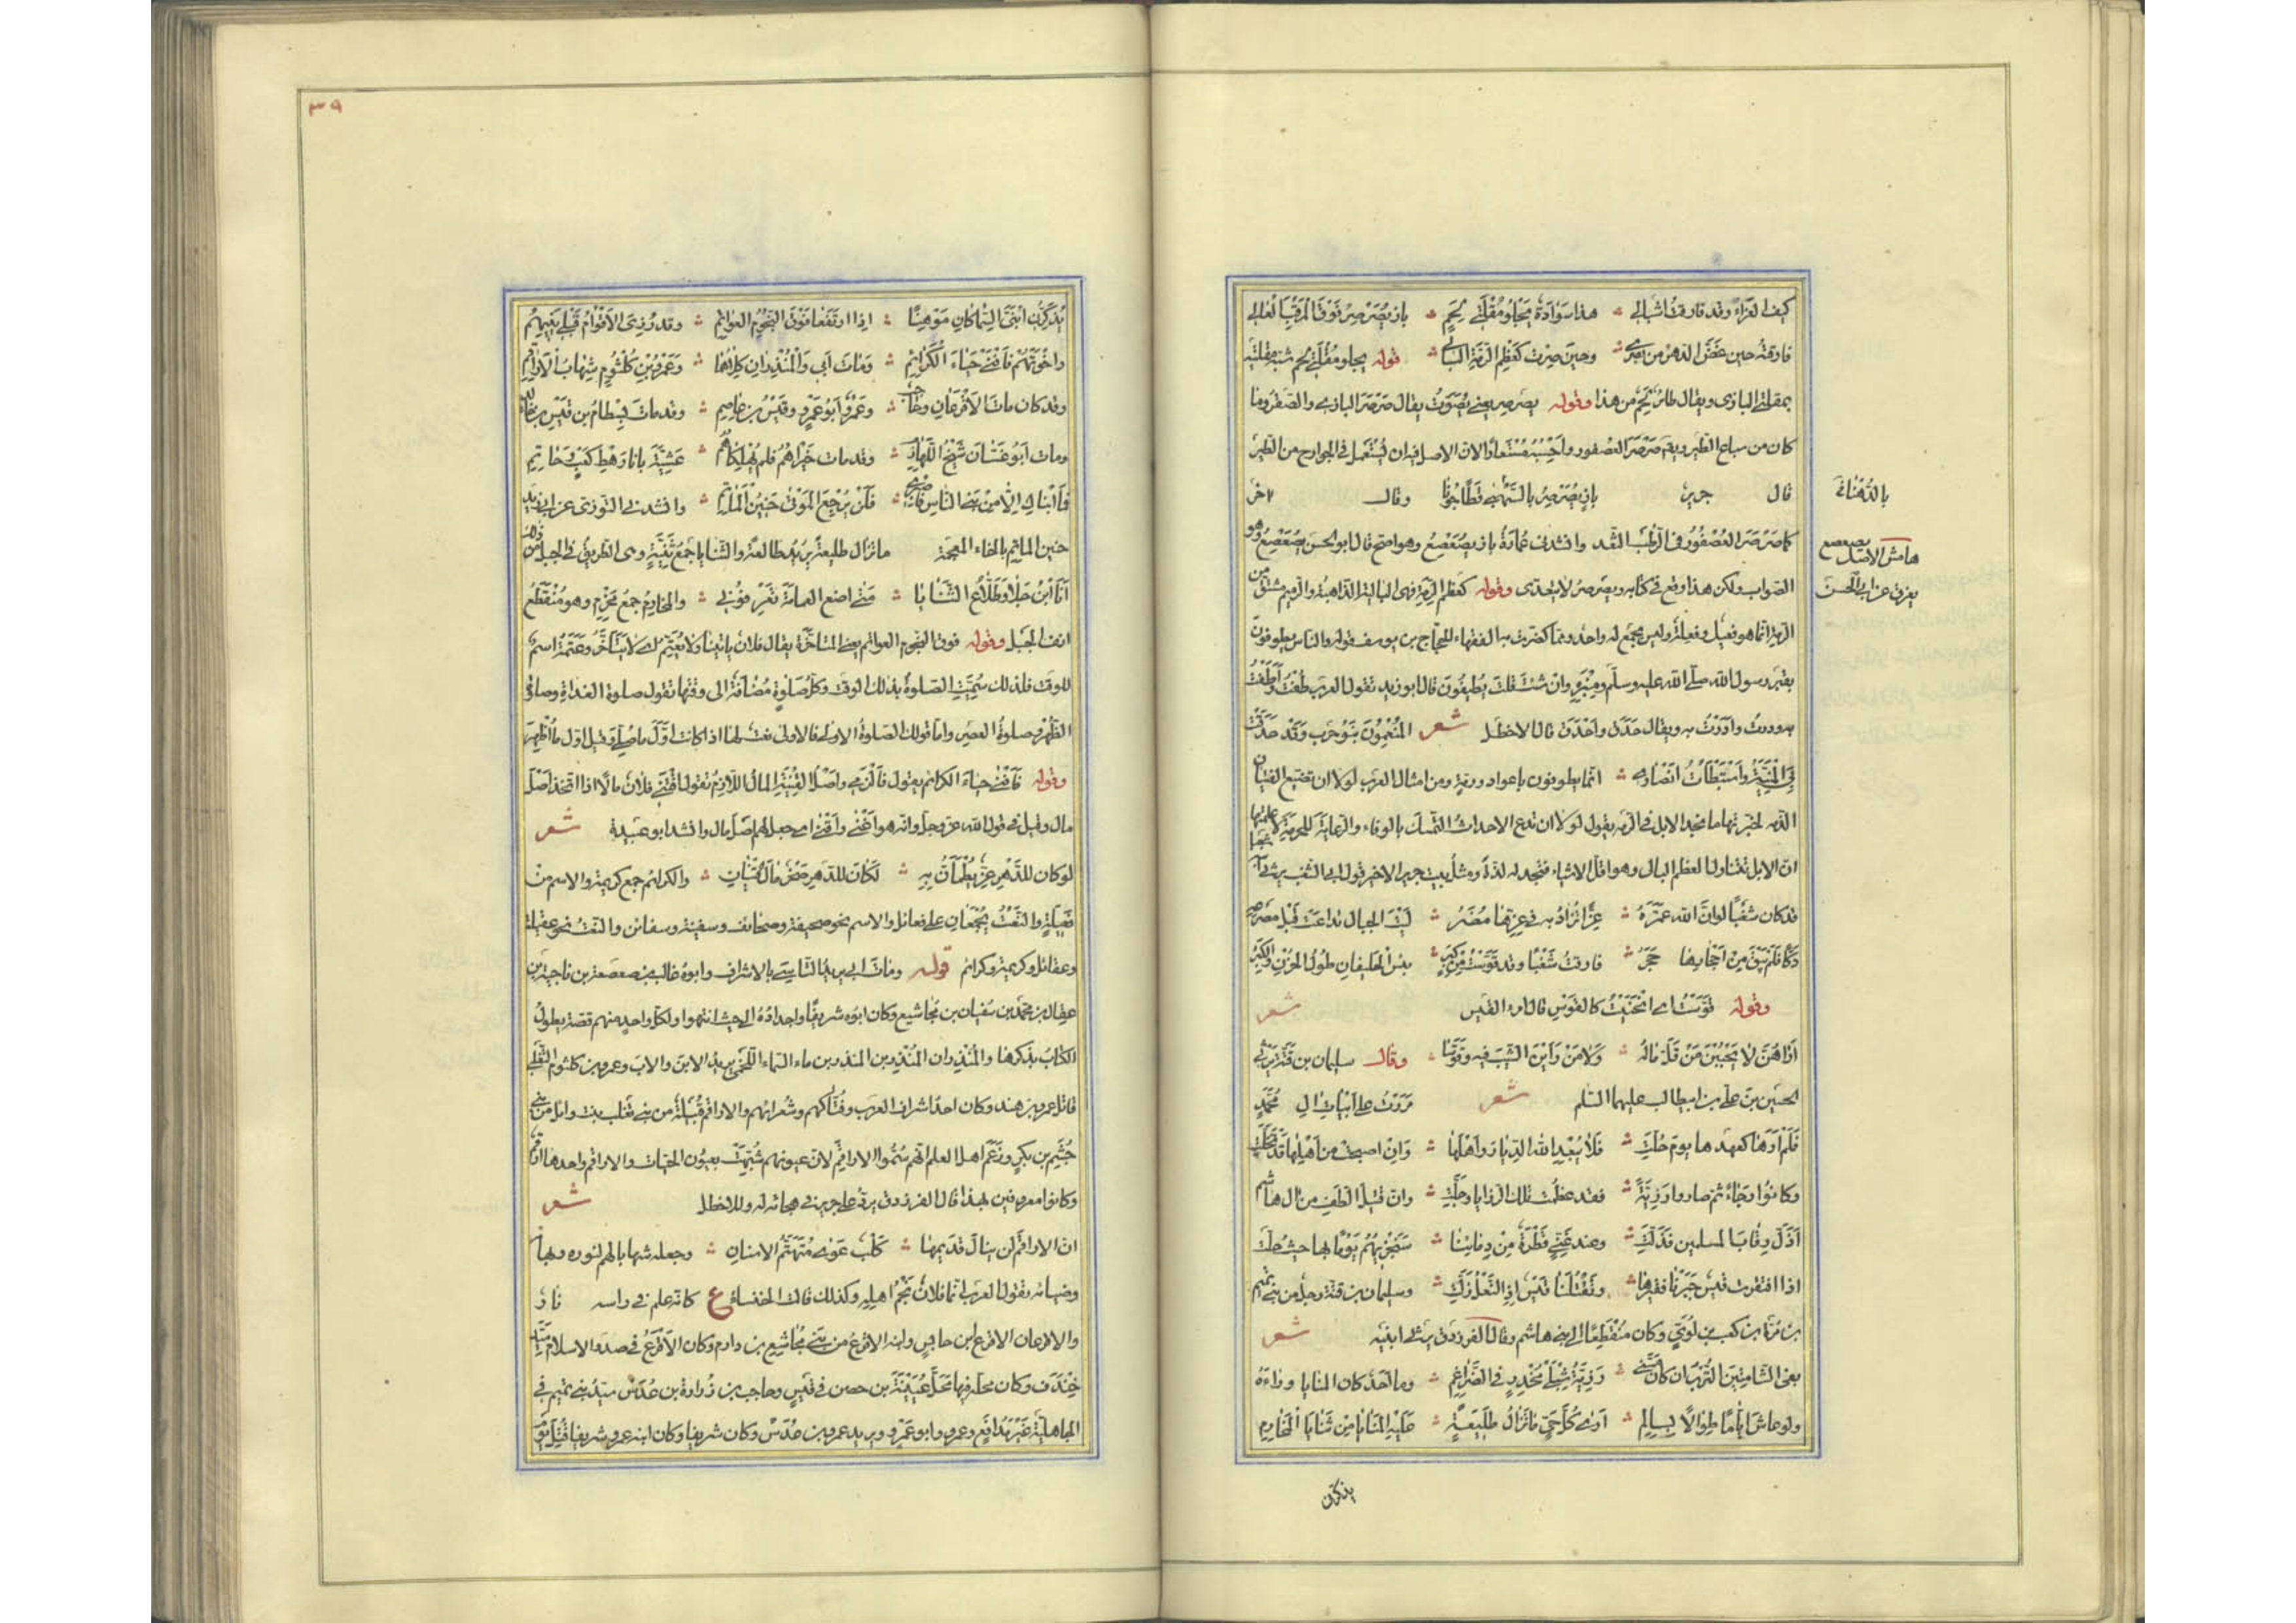 كيف العزاء وقد فارقت اشبالي هذا سوادة يجلو مقلتي لحم باز يصرصر فوق المرقب العالي
فارقته حين غض الدهر من بصري وحين صرت كعظم الرمة البالي قوله يجلو مقلتي لحم شبه مقلتيه
بمقلتي البازى ويقال طائر لحم من هذا وقوله يصرصر يعنى يصوت يقال صرصر البازى والصقر وما
كان من سباع الطير ويقـ صرصر العصفور واحسبه مستعارا لان الاصل فيه ان يستعمل فى الجوارح من الطير
قال جرير باز يصرصر بالسهبى قطا جونا وقال اخر
بالدهنا
كما صرصر العصفور فى الرطب الثعد وانشدنى عمارة باز يصعصع وهو اصح قال ابو الحسن يصعصع وهو
هامش الاصل يصعصع
الصواب ولكن هذا وقع فى كتابه ويصرصر لا يتعدى وقوله كعظم الرمة فهى البالية الذاهبة والرميم مشتق من
يعرف عن ابى الحسن
الرمة انما هو فعيل وفعلة وليس بجمع له واحد ومما كفرت به الفقهاء للحجاج بن يوسف قوله والناس يطوفون
بقبر رسول الله صلى الله عليه وسلم ومنبره وان شئت قلت يطيفون قال ابو زيد تقول العرب طفت واطفت
به ودرت وادرت به ويقال حدق واحدق قال الاخطل شعر المنعمون بنو حرب وقد حدقت
بى المنية واستبطأت انصارى انما يطوفون باعواد ورمة ومن امثال العرب لولا ان تضيع الفتيان
الذمة لخبرتها بما تجد الابل فى الرمة يقول لولا ان تدع الاحداث التمسك بالوفاء والرعاية للحرمة لاعلمتها
ان الابل تتناول العظم البالى وهو اقل الاشياء فتجد له لذة ومثل بيت جرير الاخير قول ابى الشغب يرثى ابنه شغبا
قد كان شغب لو ان الله عمره عزا تزاد به فى عزها مضر ليت الجبال تداعت قبل مصرعه
دكا فلم يبق من احجارها حجر فارقت شغبا وقد قوست من كبر بئس الحليفان طول الحزن والكبر
وقوله قوست اى انحنيت كالقوس قال امرء القيس شعر
اراهن لا يحببن من قل ماله ولا من راين الشيب فيه وقوسا وقال سليمان بن قتة يرثى
الحسين بن على بن ابيطالب عليهما السلم شعر مررت على ابيات ال محمد
فلم ارها كعهدها يوم حلت فلا يبعد الله الديار واهلها وان اصبحت من اهلها قد تخلت
وكانوا رجاء ثم صاروا رزية فقد عظمت تلك الرزايا وجلت وان قتيل الطف من ال هاشم
اذل رقاب المسلمين فذلت وعند غنى قطرة من دمائنا سنجزيهم يوما بها حيث حلت
اذا افتقرت قيس جبرنا فقيرها وتقتلنا قيس اذا النعل زلت وسليمان بن قتة رجل من بنى تميم
بن مرة بن كعب بن لوى وكان منقطعا الى بنى هاشم وقال الفرزدق يرثى ابنيه شعر
بفى الشامتين الترب ان كان مسنى رزية شبلى مخدر فى الضراغم وما احد كان المنايا وراءه
ولو عاش اياما طوالا بسالم ارى كل حى ما تزال طليعة عليه المنايا من ثنايا المخارم
يذكرن
٣٩
يذكرنى ابنى السماكان موهنا اذا ارتفعا فوق النجوم العواتم وقد رزى الاقوام قبلى بنيهم
واخوتهم فاقنى حياء الكرائم ومات ابى والمنذران كلاهما وعمرو بن كلثوم شهاب الاراقم
وقد كان مات الاقرعان وحاجب وعمرو ابو عمرو وقيس بن عاصم وقد مات بسطام بن قيس بن خالد
ومات ابو غسان شيخ اللهازم وقد مات خيراهم فلم يهلكاهم عشية بانا رهط كعب وحاتم
فما ابناك الا من بنى الناس فاصبرى فلن يرجع الموتى حنين المآتم وانشدنى التوزى عن ابى زيد
خنين الماتم بالخاء المعجمة ما تزال طليعة يريد طالعة والثنايا جمع ثنية وهى الطريق فى الجبل من ذلك
انا ابن جلا وطلاع الثنايا متى اضع العمامة تعرفونى والمخارم جمع مخرم وهو منقطع
انف الجبل وقوله فوق النجوم العواتم يعنى المتاخرة يقال فلان ياتينا ولا يعتم اى لا يتاخر وعتمة اسم
للوقت فلذلك سميت الصلوة بذلك الوقت وكل صلوة مضافة الى وقتها تقول صلوة الغداة وصلوة
الظهر وصلوة العصر واما قولك الصلوة الاولى فالاولى نعت لها اذا كانت اول ما صلى وقيل اول ما اظهر
وقوله فاقنى حياء الكرائم يقول فالزمى واصل القنية المال اللازم تقول اقتنى فلان مالا اذا اتخذ اصل
مال وقيل فى قول الله عز وجل وانه هو اغنى واقنى اى جعل لهم اصل مال وانشد ابو عبيدة شعر
لو كان للدهر عز يطمأن به لكان للدهر صخر مال قنيان والكرائم جمع كريمة والاسم من
فعيلة والنعت يجمعان على فعائل والاسم نحو صحيفة وصحائف وسفينة وسفائن والنعت نحو عقيلة
وعقائل وكريمة وكرائم قوله ومات ابى يريد التاسى بالاشراف وابوه غالب بن صعصعة بن ناجية بن
عقال بن محمد بن سفيان بن مجاشع وكان ابوه شريفا واجداده الى حيث انتهوا ولكل واحد منهم قصة يطول
الكتاب بذكرها والمنذران المنذر بن المنذر بن ماء السماء اللخمى يريد الابن والاب وعمرو بن كلثوم التغلبى
قاتل عمرو بن هند وكان احد اشراف العرب وفتاكهم وشعرائهم والاراقم قبيلة من بنى تغلب بنت وائل من بنى
جشم بن بكر وزعم اهل العلم انهم سموا الاراقم لان عيونهم شبهت بعيون الحيات والاراقم واحدها ارقم
وكانوا معروفين بهذا قال الفرزدق يرد على جرير فى هجائه له وللاخطل شعر
ان الاراقم لن ينال قديمها كلب عوى متهتم الاسنان وجعله شهابا لهم لنوره وبهائه
وضيائه تقول العرب انما فلان نجم اهله وكذلك قالت الخنساء ع كانه علم فى راسه نار
والاقرعان الاقرع بن حابس وابنه الاقرع من بنى مجاشع بن دارم وكان الاقرع فى صدر الاسلام سيد
خندف وكان محله فيها محل عيينة بن حصن فى قيس وحاجب بن زرارة بن عدس سيد بنى تميم فى
الجاهلية غير مدافع وعمرو وابو عمرو يريد عمرو بن عدس وكان شريفا وكان ابنه عمرو شريفا قتل يوم